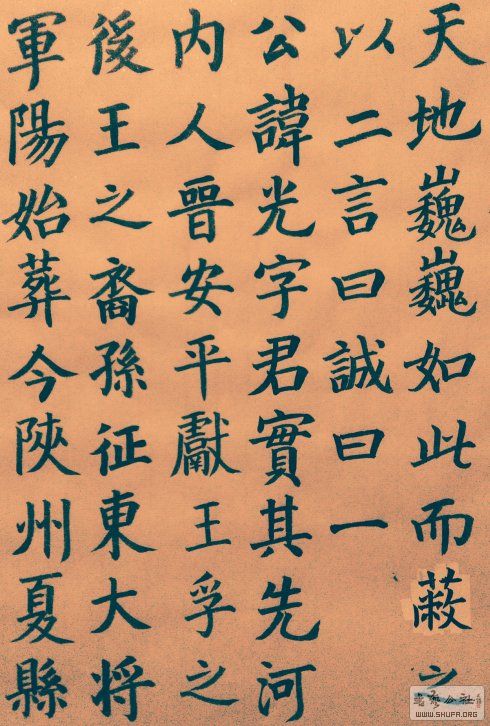 天地巍巍如此而蔽之
以二言曰誠曰一
公諱光字君實其先河
内人晉安平獻王孚之
後王之裔孫征東大将
軍陽始葬今陝州夏縣
WWW.SHUFA.ORG